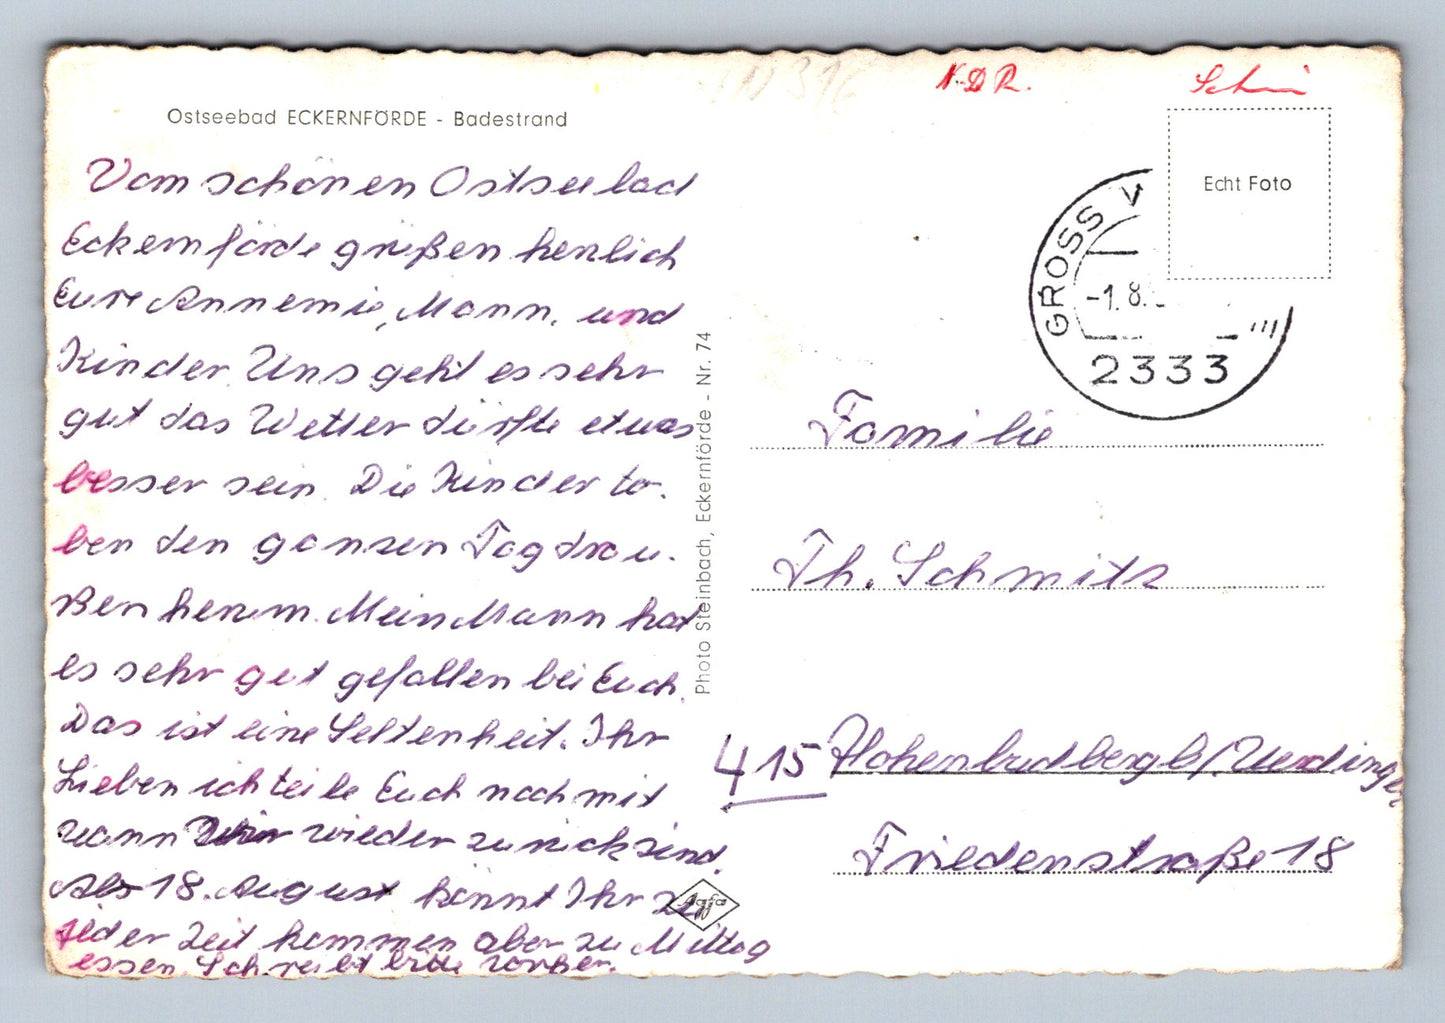 N.D.R.
Ostseebad ECKERNFÖRDE - Badestrand
Echt Foto
GROSS
-1.8.
2333
Vom schönen Ostseebad
Eckernförde grüßen herzlich
Eure Annemie, Mann, und
Kinder. Uns geht es sehr
gut das Wetter dürfte etwas
besser sein. Die Kinder to-
ben den ganzen Tag drau-
ßen herum. Mein Mann hat
es sehr gut gefallen bei Euch.
Das ist eine Seltenheit. Ihr
Lieben ich teile Euch noch mit
wann wir wieder zurück sind.
Ab 18. August könnt Ihr zu
jeder Zeit kommen aber zu Mittag
essen. Schreibt bitte vorher.
Photo Steinbach, Eckernförde - Nr. 74
Agfa
Familie
Th. Schmitz
415 Hohenbudberg b/Uerdingen
Friedenstraße 18